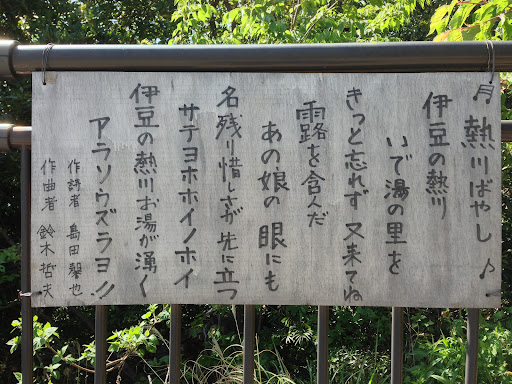 月 熱川ばやし ♪
伊豆の熱川
いで湯の里を
きっと忘れず 又来てね
露を含んだ
あの娘の 眼にも
名残り惜しさが 先に立つ
サテヨホホイノホイ
伊豆の熱川お湯が湧く
アラソウズラヨ!!
作詩者 島田磬也
作曲者 鈴木哲夫